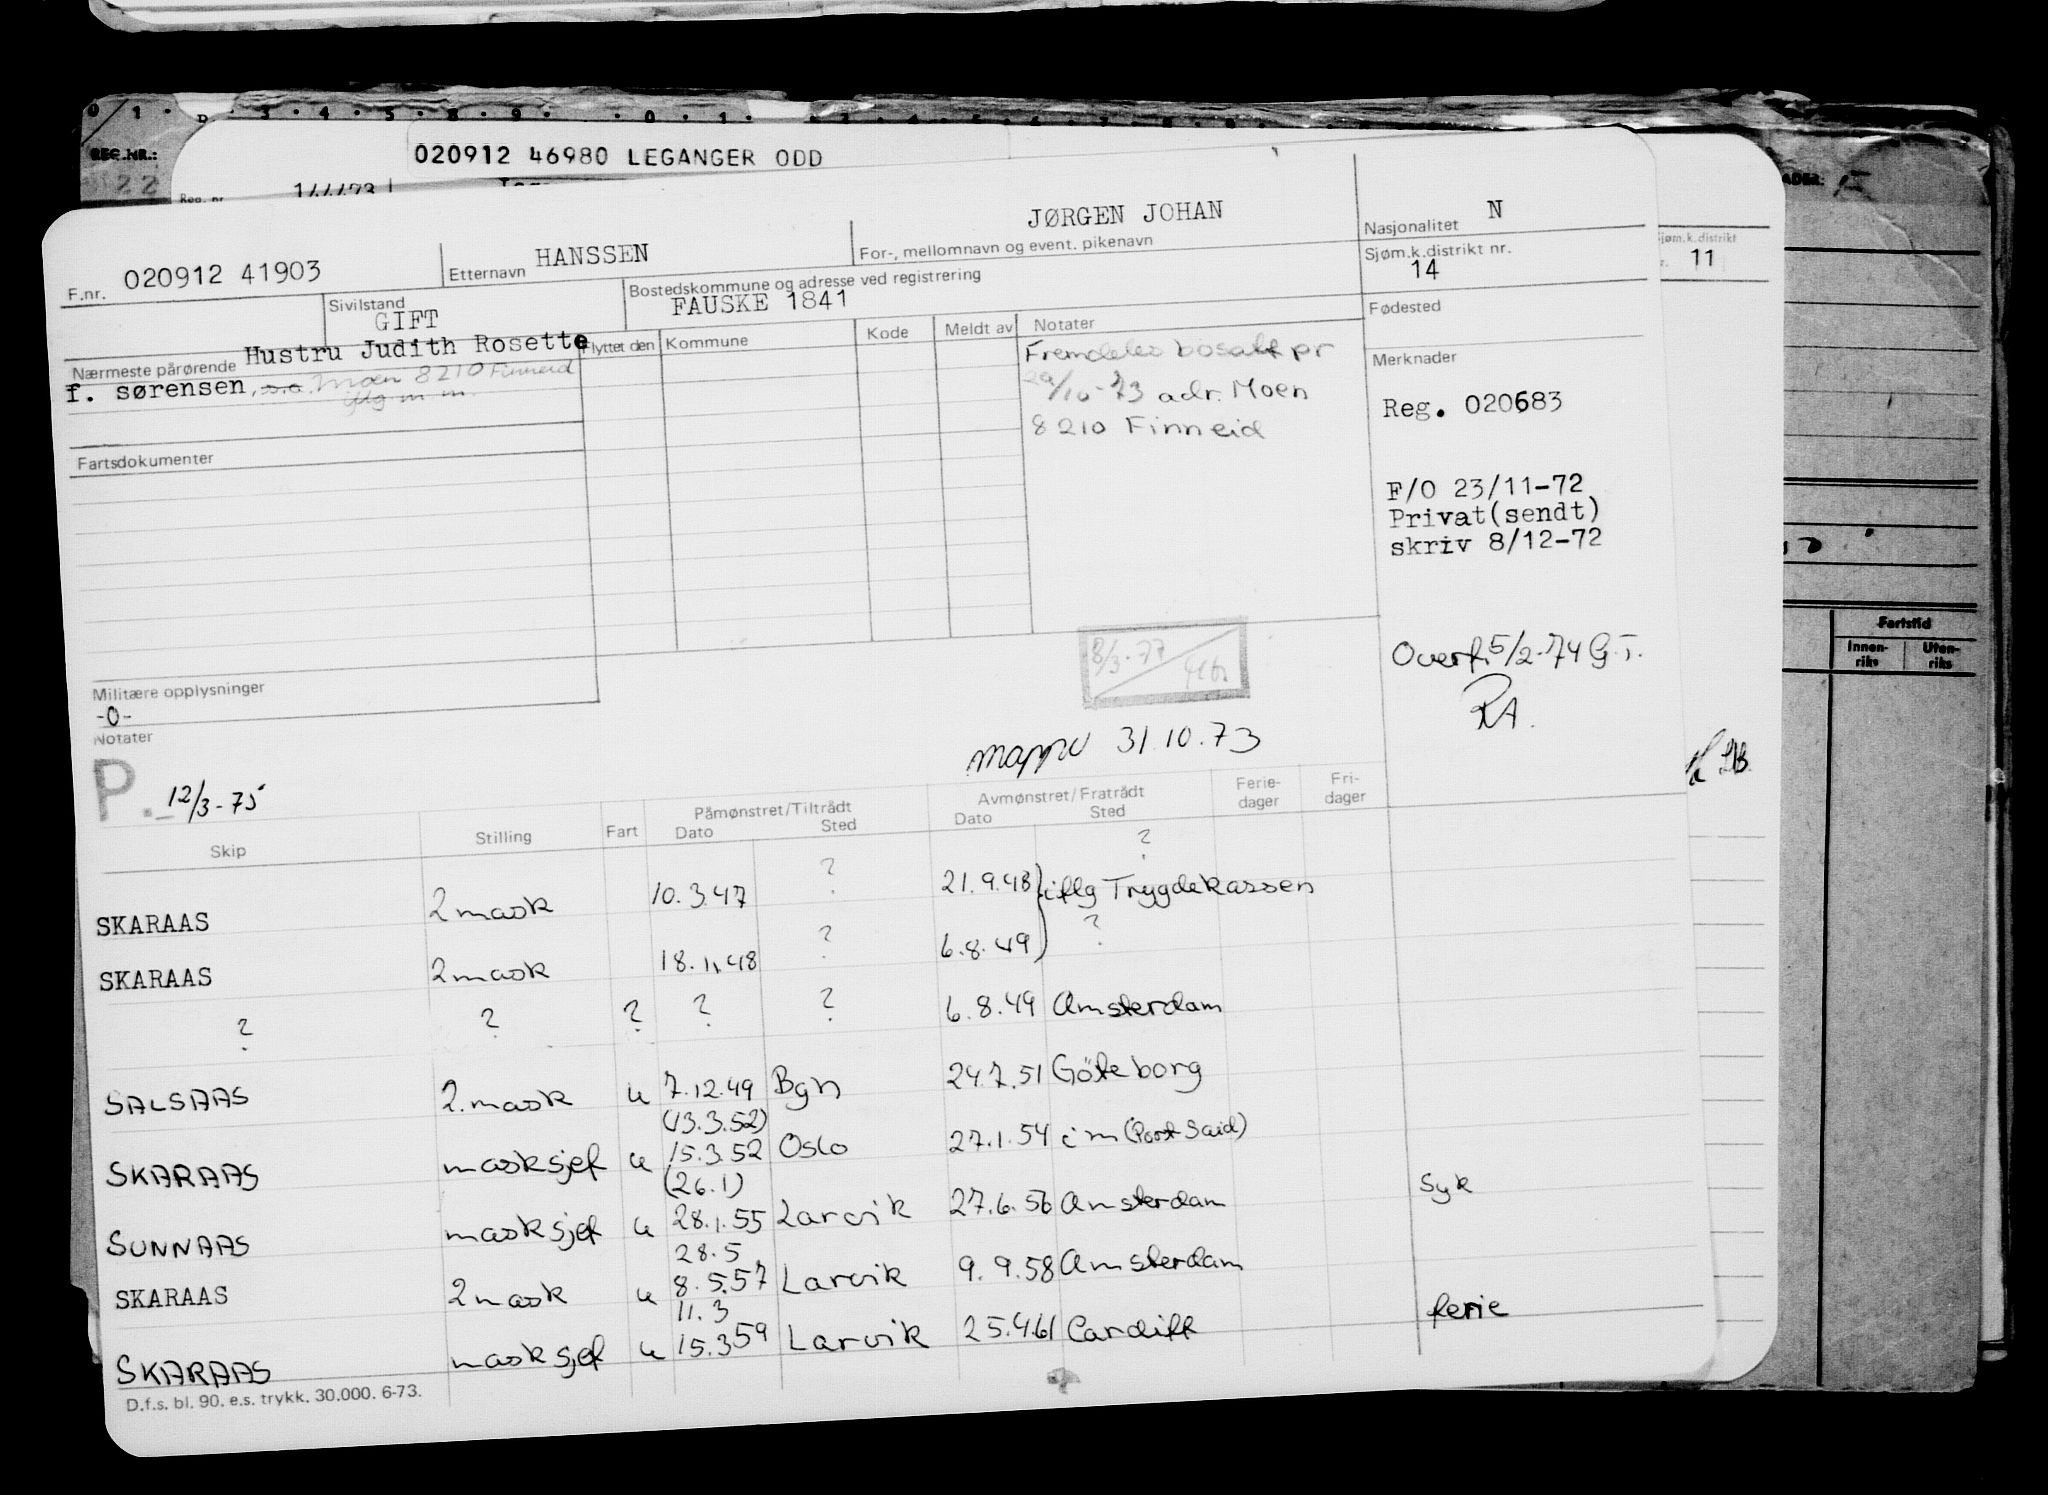 020912 46980 LEGANGER ODD
REG.NR.:
22
Reg. nr.
F.nr. 020912 41903
Etternavn HANSSEN
For-, mellomnavn og event. pikenavn JØRGEN JOHAN
Nasjonalitet N
Sjøm.k.distrikt nr. 14
Sjøm.k.distrikt
11
Sivilstand GIFT
Bostedskommune og adresse ved registrering
FAUSKE 1841
Fødested
Nærmeste pårørende Hustru Judith Rosette
f. sørensen, s.a. Moen 8210 Finneid
iflg m.m.
Flyttet den Kommune Kode Meldt av Notater
Fremdeles bosatt pr
29/10-73 adr. Moen
8210 Finneid
Merknader
Reg. 020683
F/O 23/11-72
Privat(sendt)
skriv 8/12-72
Overf. 5/2-74 G.T.
RA.
Fartsdokumenter
Militære opplysninger
-0-
Notater
P. 12/3-75
8/3-77
mappe 31.10.73
Fartstid
Innen-riks Uten-riks
Skip Stilling Fart Påmønstret/Tiltrådt Dato Sted Avmønstret/Fratrådt Dato Sted Ferie-dager Fri-dager
SKARAAS 2 mask 10.3.47 ? 21.9.48 ? iflg Trygdekassen
SKARAAS 2 mask 18.11.48 ? 6.8.49 ?
? ? ? ? ? 6.8.49 Amsterdam
SALSAAS 2. mask u 7.12.49 Bgn 24.7.51 Göteborg
(13.3.52)
SKARAAS masksjef u 15.3.52 Oslo 27.1.54 i m (Port Said)
(26.1)
SUNNAAS masksjef u 28.1.55 Larvik 27.6.56 Amsterdam Syk
28.5
SKARAAS 2 mask u 8.5.57 Larvik 9.9.58 Amsterdam
11.3
SKARAAS masksjef u 15.3.59 Larvik 25.4.61 Cardiff ferie
D.f.s. bl. 90. e.s. trykk. 30.000. 6-73.